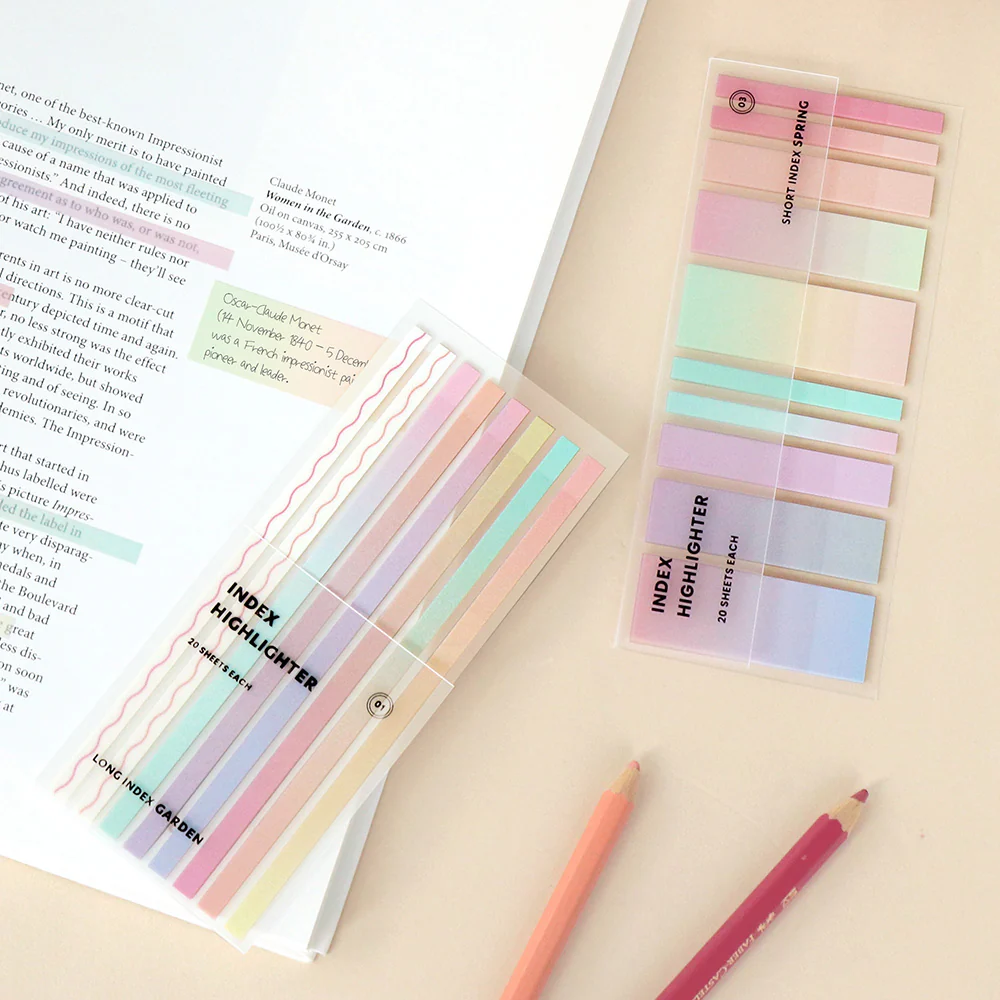 net, one of the best-known Impressionist
ories … My only merit is to have painted
oduce my impressions of the most fleeting
cause of a name that was applied to
essionists." And indeed, there is no
agreement as to who was, or was not,
of his art: "I have neither rules nor
or watch me painting – they'll see
rents in art is no more clear-cut
l directions. This is a motif that
entury depicted time and again.
r, no less strong was the effect
tly exhibited their works
ts worldwide, but showed
ing and of seeing. In so
revolutionaries, and were
demies. The Impression-
rt that started in
hus labelled were
s picture Impres-
led the label in
te very disparag-
y when, in
medals and
the Boulevard
and bad
great
less dis-
n soon
" was
at
Claude Monet
Women in the Garden, c. 1866
Oil on canvas, 255 x 205 cm
(100½ x 80¾ in.)
Paris, Musée d'Orsay
Oscar-Claude Monet
(14 November 1840 – 5 Decem
was a French impressionist pai
pioneer and leader.
INDEX
HIGHLIGHTER
20 SHEETS EACH
01
LONG INDEX GARDEN
03
SHORT INDEX SPRING
INDEX
HIGHLIGHTER
20 SHEETS EACH
FABER-CASTELL